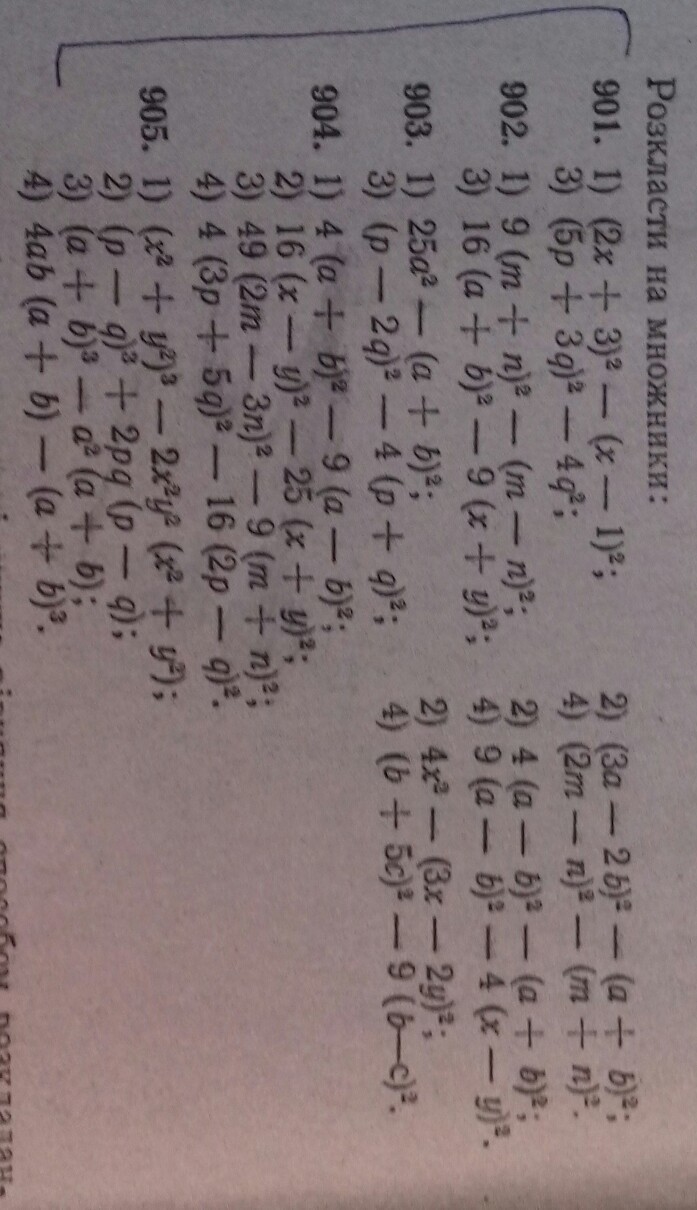 Розкласти на множники:
901. 1) (2x + 3)² — (x — 1)²; 2) (3a — 2b)² — (a + b)²;
3) (5p + 3q)² — 4q²; 4) (2m — n)² — (m + n)².
902. 1) 9 (m + n)² — (m — n)²; 2) 4 (a — b)² — (a + b)²;
3) 16 (a + b)² — 9 (x + y)²; 4) 9 (a — b)² — 4 (x — y)².
903. 1) 25a² — (a + b)²; 2) 4x² — (3x — 2y)²;
3) (p — 2q)² — 4 (p + q)²; 4) (b + 5c)² — 9 (b—c)².
904. 1) 4 (a + b)² — 9 (a — b)²;
2) 16 (x — y)² — 25 (x + y)²;
3) 49 (2m — 3n)² — 9 (m + n)²;
4) 4 (3p + 5q)² — 16 (2p — q)².
905. 1) (x² + y²)³ — 2x²y² (x² + y²);
2) (p — q)³ + 2pq (p — q);
3) (a + b)³ — a² (a + b);
4) 4ab (a + b) — (a + b)³.
способом